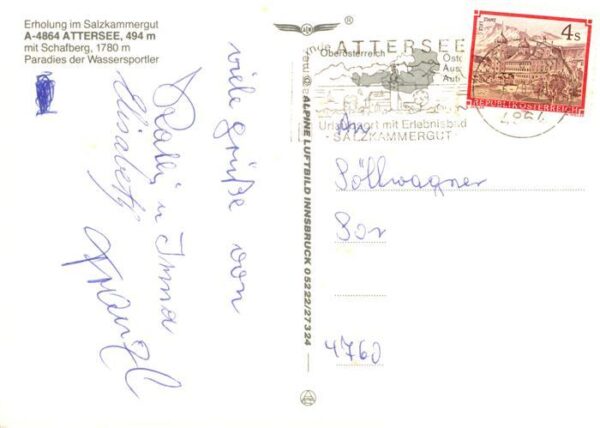 Erholung im Salzkammergut
A-4864 ATTERSEE, 494 m
mit Schafberg, 1780 m
Paradies der Wassersportler
viele grüße von
Ralli u Irma
Elisabeth
Franzl
® ALPINE LUFTBILD INNSBRUCK 05222/27324
®
ATTERSEE
Oberösterreich
Urlaubsort mit Erlebnisbad
-SALZKAMMERGUT-
4864
STIFT
4 S
REPUBLIK ÖSTERREICH
An
Söllwagner
4760